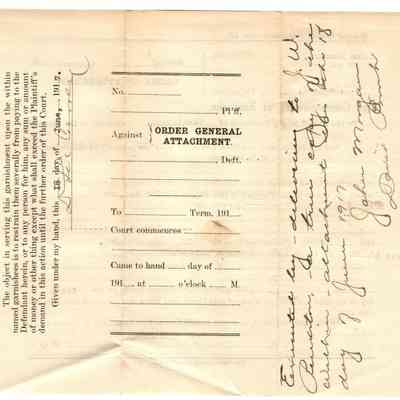 The object in serving this garnishment upon the within
named garnishees is to restrain them severally from paying to the
Defendant herein, or to any person for him, any sum or amount
of money or other thing except what shall exceed the Plaintiff's
demand in this action until the further order of this Court.
Given under my hand, this 18 day of June, 1917.
No.
Pl'ff.
Against
ORDER GENERAL
ATTACHMENT.
Deft.
To Term, 191
Court commences
Came to hand day of
191 at o'clock M.
Executed by delivering to J. W.
a true copy of the
within attachment this the 18
day of June 1917
John Morgan